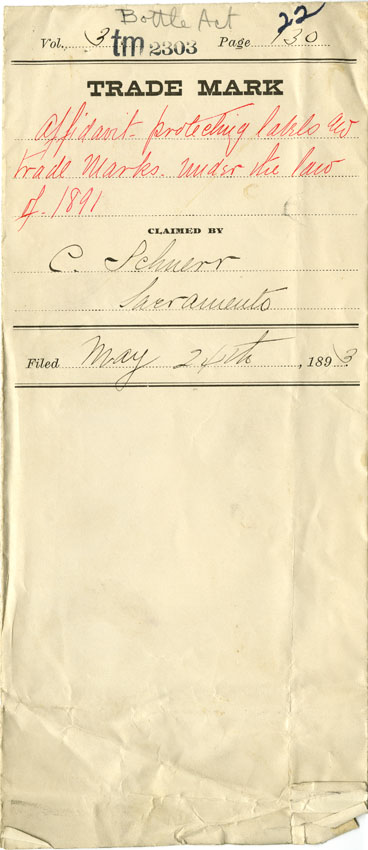 Bottle Act 22
Vol. 3 tm 2303 Page 130
TRADE MARK
Affidavit protecting labels and
trade Marks. under the law
of 1891
CLAIMED BY
C. Schnerr
Sacramento
Filed May 24th, 1893